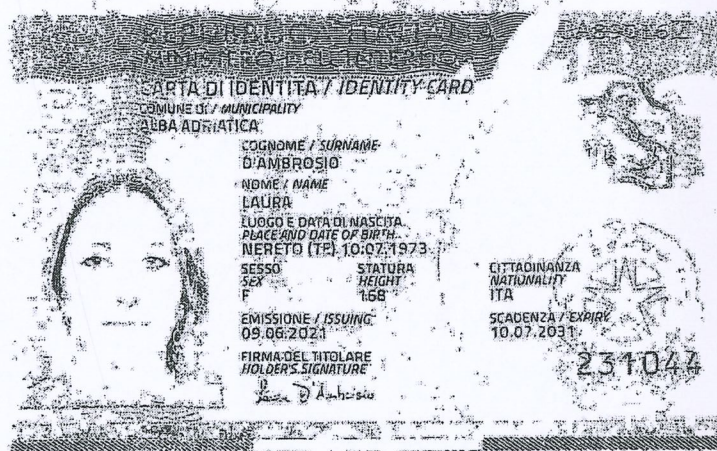 REPUBBLICA ITALIANA
MINISTERO DELL'INTERNO
CARTA DI IDENTITÀ / IDENTITY CARD
COMUNE DI / MUNICIPALITY
ALBA ADRIATICA
COGNOME / SURNAME
D'AMBROSIO
NOME / NAME
LAURA
LUOGO E DATA DI NASCITA
PLACE AND DATE OF BIRTH
NERETO (TE) 10.07.1973
SESSO STATURA CITTADINANZA
SEX HEIGHT NATIONALITY
F 168 ITA
EMISSIONE / ISSUING SCADENZA / EXPIRY
09.06.2021 10.07.2031
FIRMA DEL TITOLARE
HOLDER'S SIGNATURE
231044
Laura D'Ambrosio